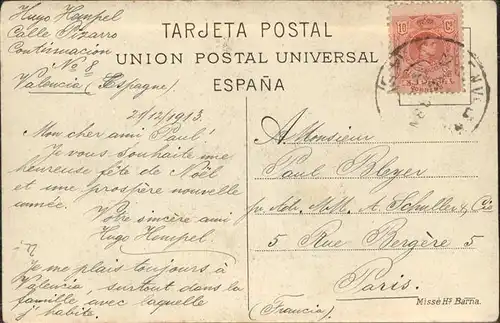 Hugo Hempel
Calle Pizarro
Confirmacion
No. 8
Valencia (Espagne)
TARJETA POSTAL
UNION POSTAL UNIVERSAL
ESPAÑA
21/12/1913.
Mon cher ami Paul!
Je vous souhaite une
heureuse fête de Noël
et une prospère nouvelle
année.
Votre sincère ami
Hugo Hempel.
Je me plais toujours à
Valencia, surtout dans la
famille avec laquelle
j'habite.
10 Cs
A Monsieur
Paul Bleyer
pr Adr. M.M. A Schuller & Cie
5 Rue Bergère 5
Paris.
(Francia)
Missé Hs Barna.